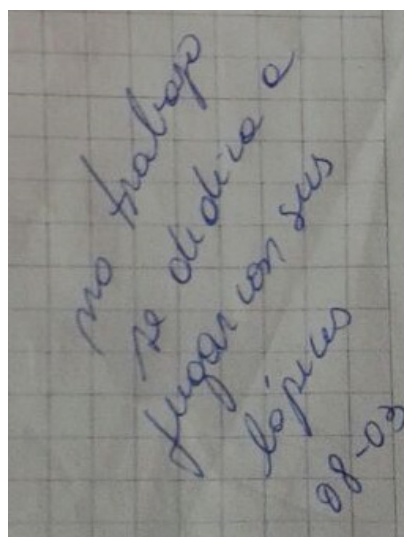 no trabajo
se didica a
jugar con sus
lápices
08-03